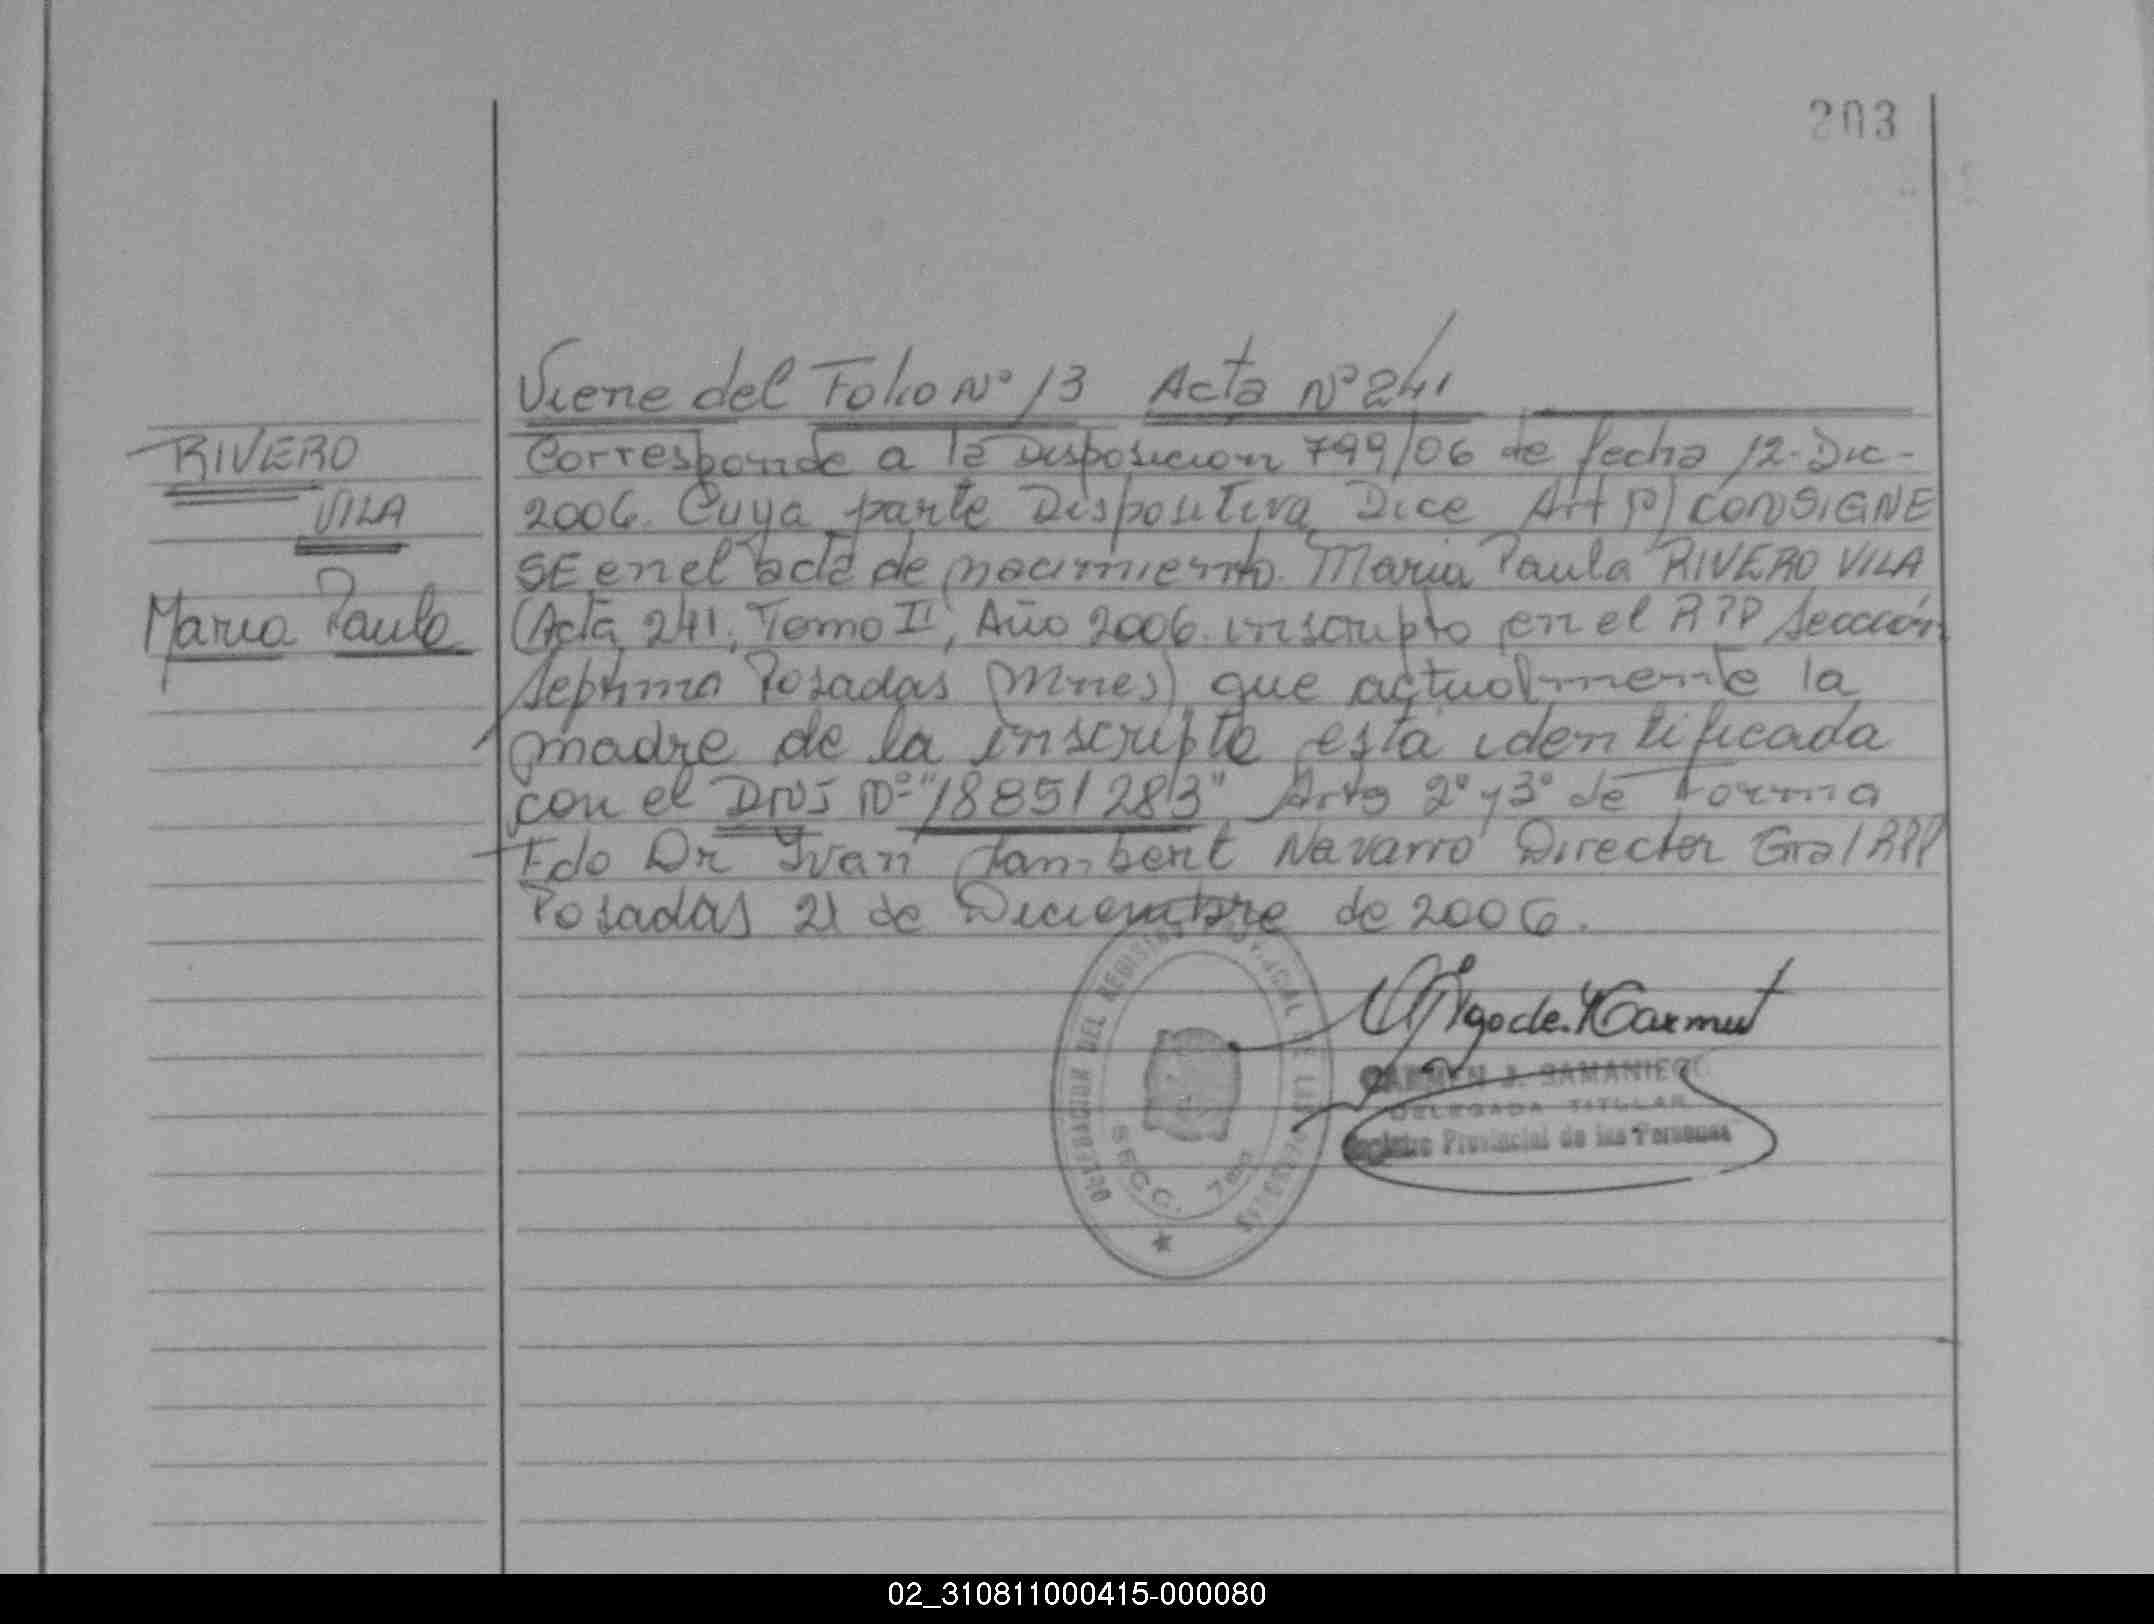 203
Viene del Folio Nº 13 Acta Nº 241
RIVERO
VILA
Maria Paula
Corresponde a la Disposicion 799/06 de fecha 12-Dic-
2006. Cuya parte Dispositiva Dice Art 1º) CONSIGNE
SE en el acta de nacimiento Maria Paula RIVERO VILA
(Acta 241, Tomo II, Año 2006 inscripto en el RPP Sección
Septima Posadas (Mnes) que actualmente la
madre de la inscripta esta identificada
con el DNI Nº "18851283" Arts 2º y 3º de Forma
Fdo Dr Ivan Navarro Director Gral RPP
Posadas 21 de Diciembre de 2006.
DELEGACION DEL REGISTRO PROVINCIAL DE LAS PERSONAS
SECC. 7ma
CARMEN J. SAMANIEGO
DELEGADA TITULAR
Registro Provincial de las Personas
02_310811000415-000080